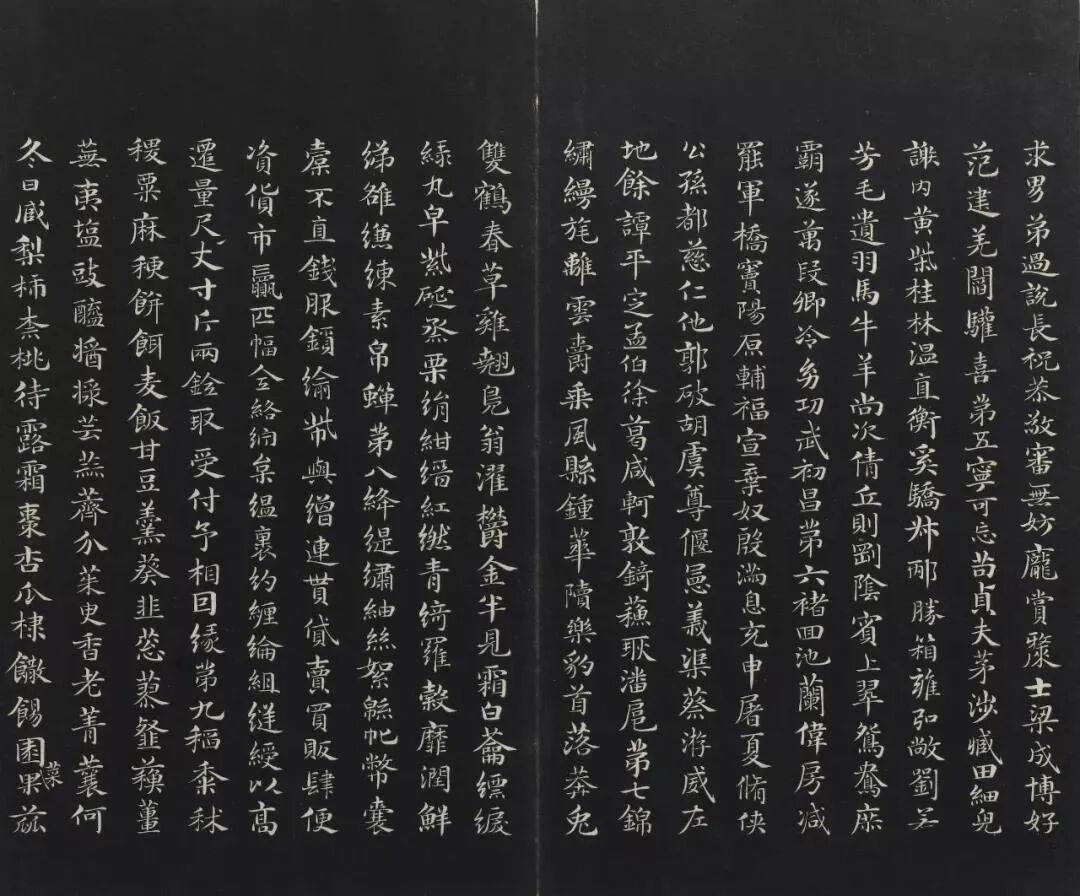 求男弟過說長祝恭敬審無妨龐賞士梁成博好
范建羌閻驩喜第五寧可忘苗貞夫茅涉臧田細兒
謝内黄柴桂林溫直衡奚驕叔邴勝箱雍弘敞劉若
芳毛遺羽馬牛羊尚次倩丘則劉陰賓上翠鴛鴦庶
霸遂萬段卿冷幼功武初昌第六褚回池蘭偉房减
罷軍橋竇陽原輔福宣棄奴殷滿息充申屠夏脩俠
公孫都慈仁他郭破胡虞尊偃憲義渠蔡游威左
地餘譚平定孟伯徐葛咸軻敦錡蘇耿潘扈第七錦
繡縵旄離雲爵乘風縣鍾華隤樂豹首落莽兎
雙鶴春草雞翹鳧翁濯欝金半見霜白蘥縹綟
緑丸皁紫硟烝栗絹紺縉紅繎青綺羅縠靡潤鮮
綈雒縑練素帛蟬第八絳緹繡紬絲絮緜帊幣囊
橐不直錢服鎖緰幣與繒連貰貸賣買販肆便
資貨市贏匹幅全絡納枲緼裏約纏綸組縌綬以高
遷量尺丈寸斤兩銓取受付予相因緣第九稻黍秫
稷粟麻稉餅餌麦飯甘豆羹葵韭葱蓼韰蘓薑
蕪荑塩豉醯醬芸蒜薺介茱臾香老菁蘘何
冬日臧梨柿柰桃待露霜棗杏瓜棣饊餳園菜果茲